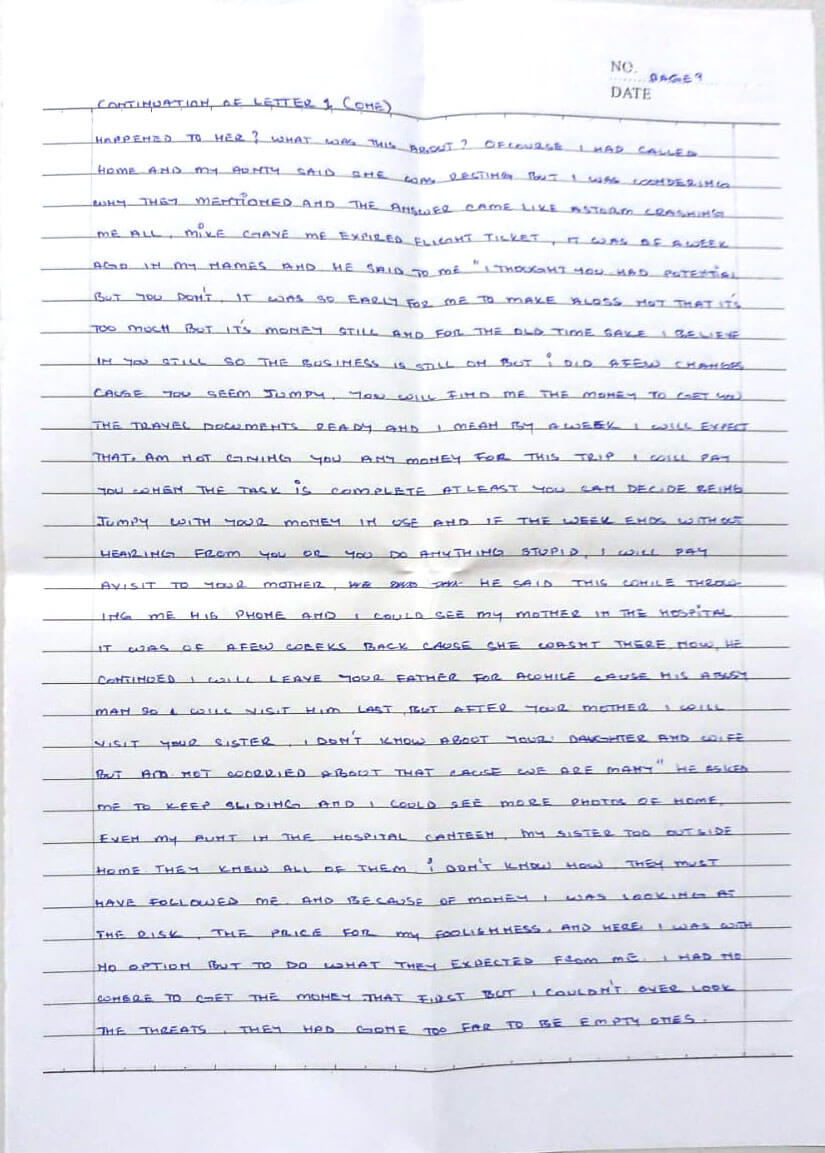 NO. PAGE 9
DATE
CONTINUATION OF LETTER 1 (ONE)
HAPPENED TO HER? WHAT WAS THIS ABOUT? OFCOURSE I HAD CALLED
HOME AND MY AUNTY SAID SHE WAS RESTING BUT I WAS WONDERING
WHY THEY MENTIONED AND THE ANSWER CAME LIKE ASTORM CRASHING
ME ALL, MIKE GAVE ME EXPIRED FLIGHT TICKET, IT WAS OF AWEEK
AGO IN MY NAMES AND HE SAID TO ME "I THOUGHT YOU HAD POTENTIAL
BUT YOU DON'T, IT WAS SO EARLY FOR ME TO MAKE ALOSS NOT THAT IT'S
TOO MUCH BUT IT'S MONEY STILL AND FOR THE OLD TIME SAKE I BELIEVE
IN YOU STILL SO THE BUSINESS IS STILL ON BUT I DID AFEW CHANGES
CAUSE YOU SEEM JUMPY, YOU WILL FIND ME THE MONEY TO GET
THE TRAVEL DOCUMENTS READY AND I MEAN BY AWEEK I WILL EXPECT
THAT. AM NOT GIVING YOU ANY MONEY FOR THIS TRIP I WILL PAY
YOU WHEN THE TASK IS COMPLETE ATLEAST YOU CAN DECIDE BEING
JUMPY WITH YOUR MONEY IN USE AND IF THE WEEK ENDS WITHOUT
HEARING FROM YOU OR YOU DO ANYTHING STUPID, I WILL PAY
AVISIT TO YOUR MOTHER, HE SAID THIS WHILE THROW-
ING ME HIS PHONE AND I COULD SEE MY MOTHER IN THE HOSPITAL
IT WAS OF AFEW WEEKS BACK CAUSE SHE WASNT THERE NOW, HE
CONTINUED I WILL LEAVE YOUR FATHER FOR AWHILE CAUSE HIS ABUSY
MAN SO I WILL VISIT HIM LAST, BUT AFTER YOUR MOTHER I WILL
VISIT YOUR SISTER, I DON'T KNOW ABOUT YOUR DAUGHTER AND WIFE
BUT AM NOT WORRIED ABOUT THAT CAUSE WE ARE MANY" HE ASKED
ME TO KEEP SLIDING AND I COULD SEE MORE PHOTOS OF HOME,
EVEN MY AUNT IN THE HOSPITAL CANTEEN, MY SISTER TOO OUTSIDE
HOME. THEY KNEW ALL OF THEM. I DON'T KNOW HOW, THEY MUST
HAVE FOLLOWED ME. AND BECAUSE OF MONEY I WAS LOOKING AT
THE RISK, THE PRICE FOR MY FOOLISHNESS. AND HERE I WAS WITH
NO OPTION BUT TO DO WHAT THEY EXPECTED FROM ME. I HAD NO
WHERE TO GET THE MONEY THAT FIRST BUT I COULDN'T OVER LOOK
THE THREATS, THEY HAD GONE TOO FAR TO BE EMPTY ONES.